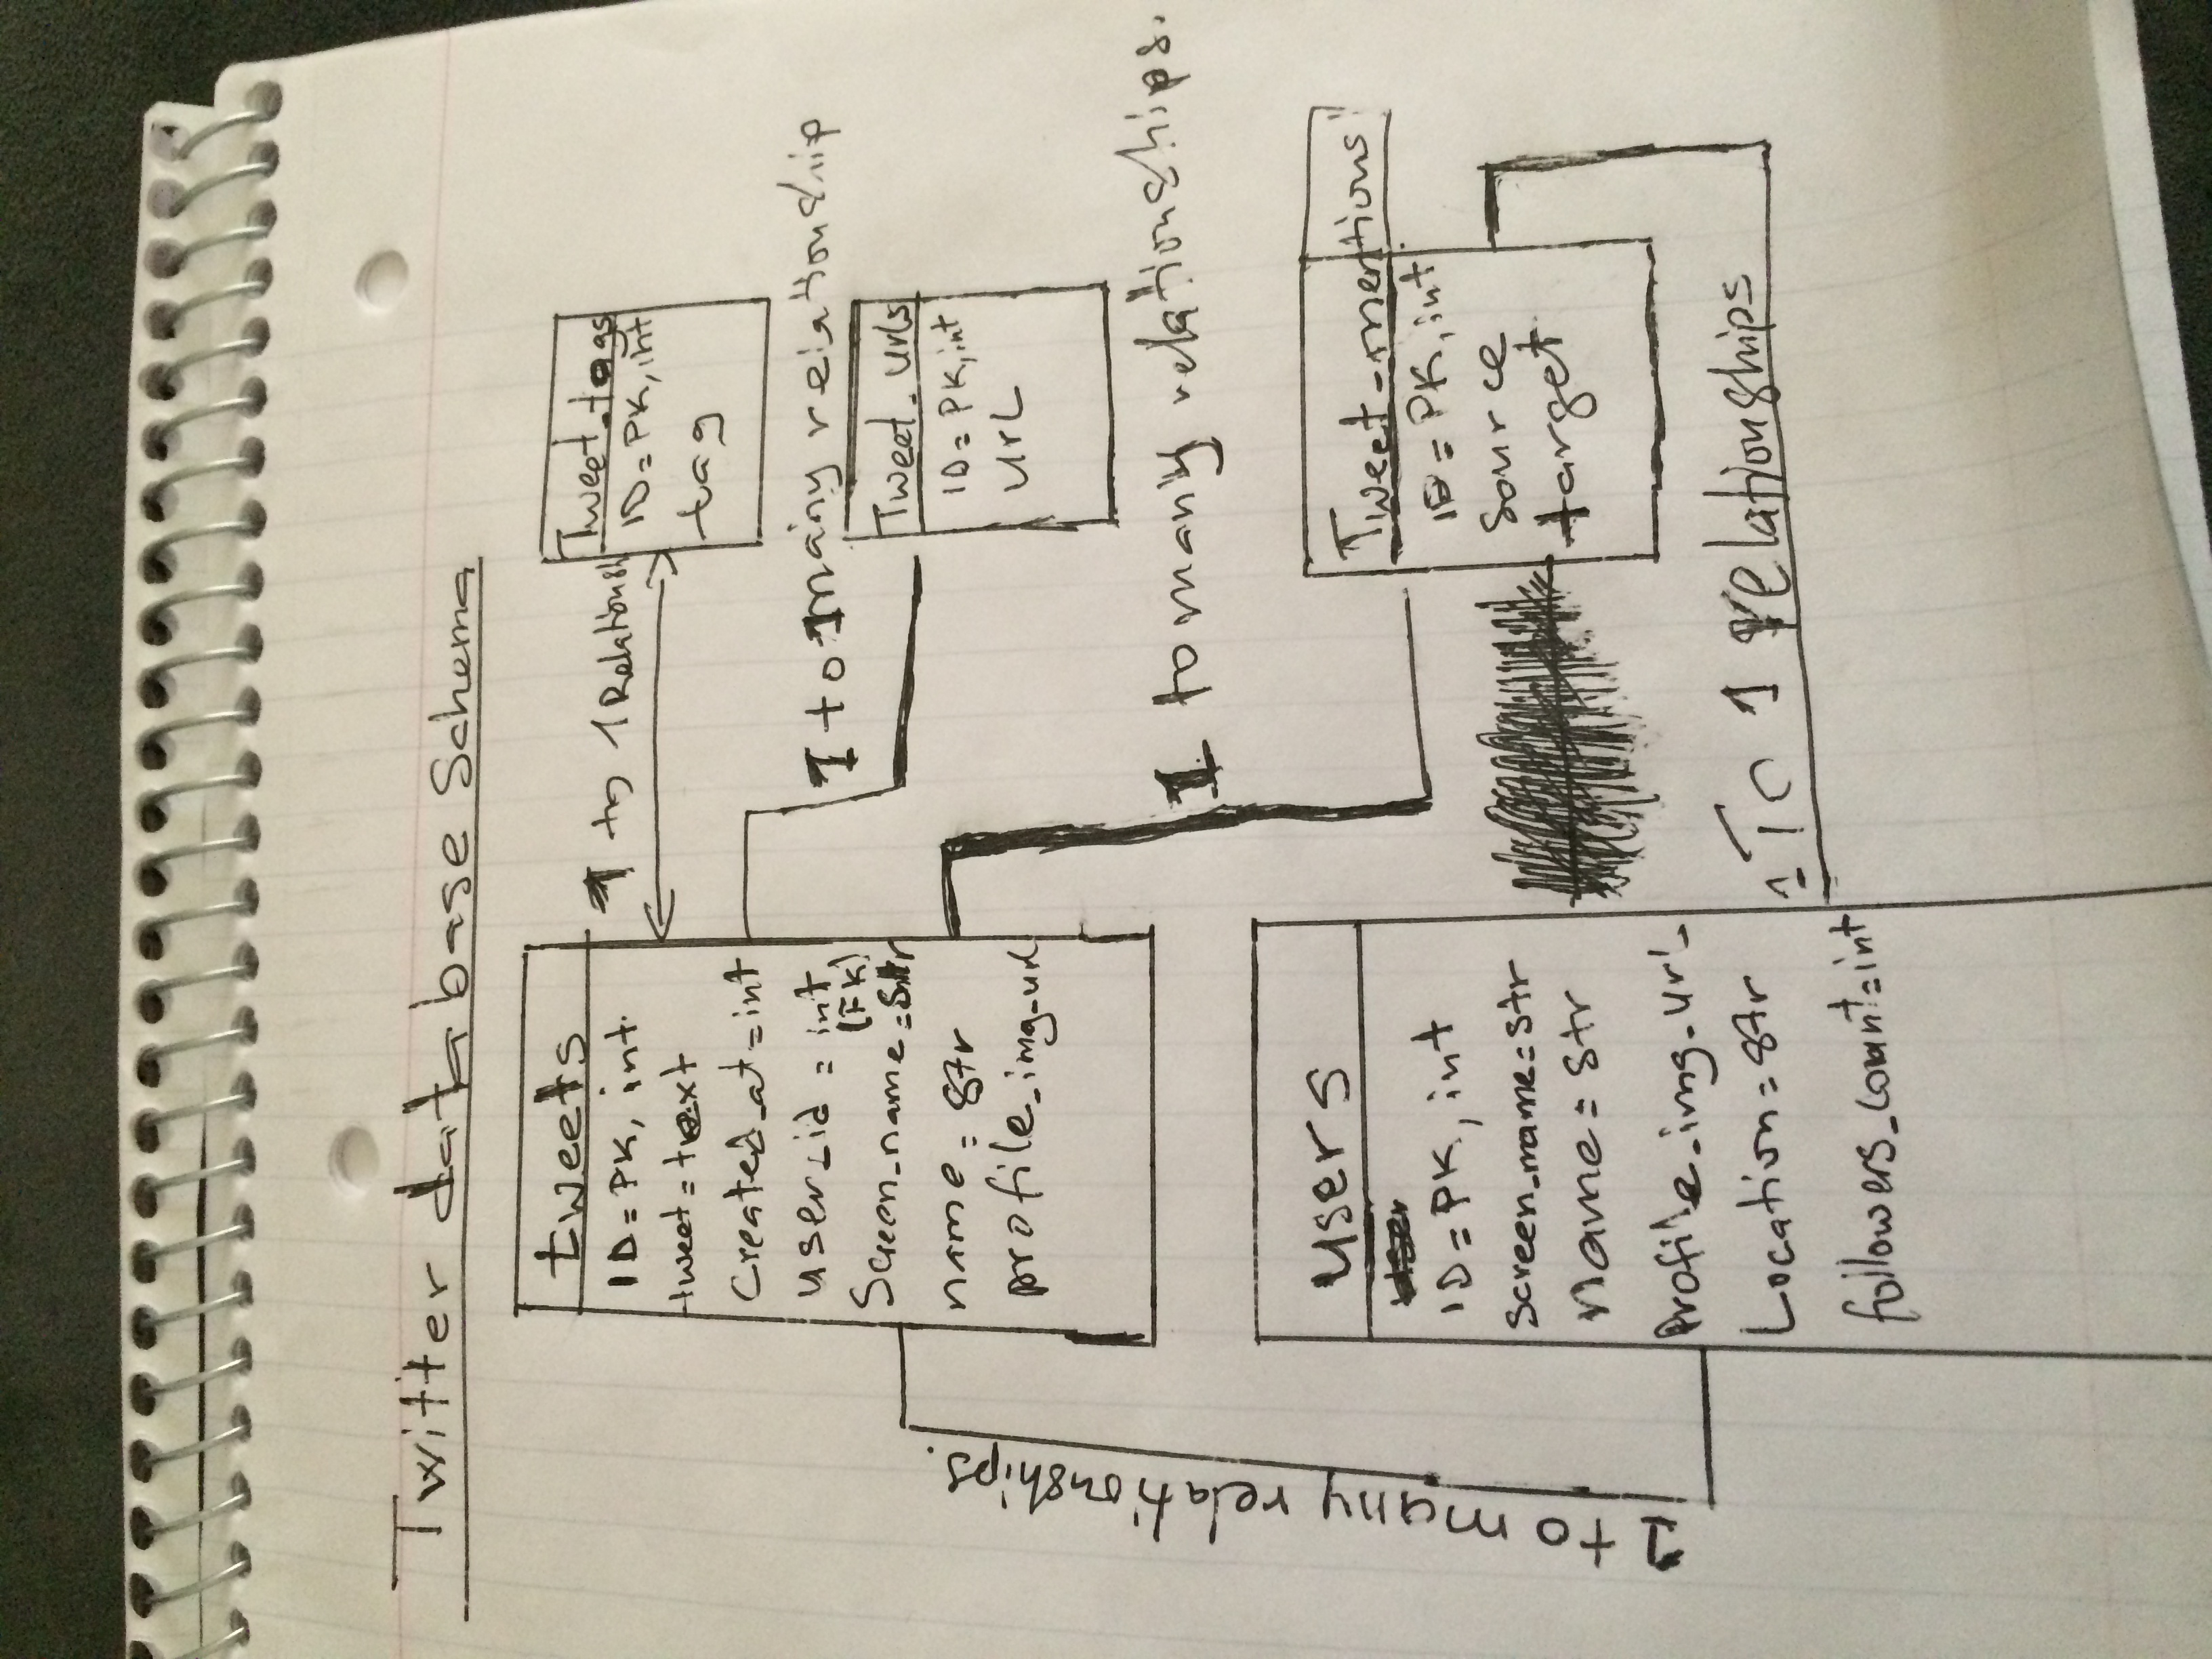 Twitter database Schema
tweets
ID = PK, int.
tweet = text
Created_at = int
user_id = int
(FK)
Screen_name = Str
name = str
profile_img_url
1 to 1 Relationsh
Tweet_tags
ID = PK, int
tag
1 to many relationship
Tweet_urls
ID = PK, int
UrL
1 to many relationships.
Tweet_mentions
ID = PK, int
Source
target
1 to many relationships.
users
ID = PK, int
Screen_name = str
Name = str
Profile_img_url
Location = str
followers_count = int
1 To 1 relationships